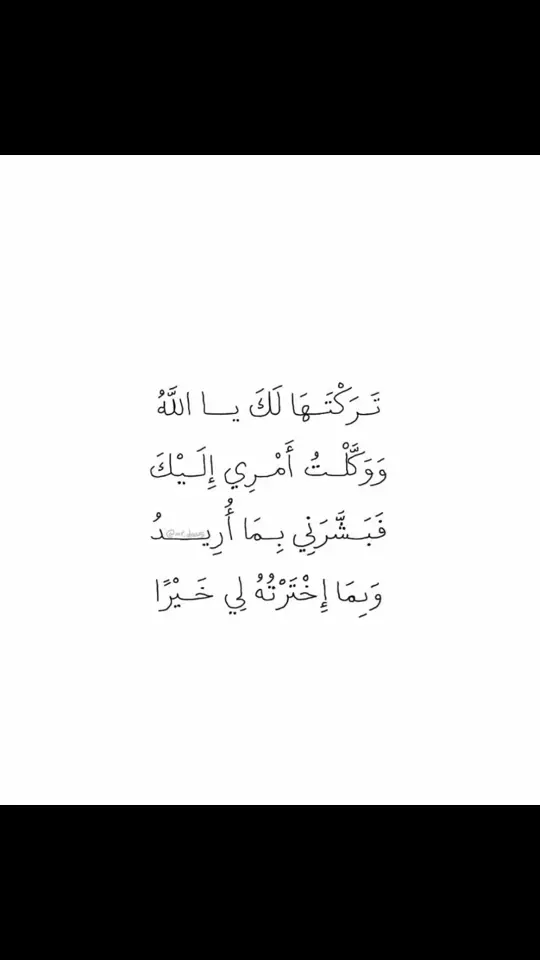 تَـرَكْتَـهَا لَكَ يـــا اللَّهُ
وَوَكَّلْـتُ أَمْـرِي إِلَـيْكَ
فَبَـشَّرَنِي بِـمَا أُرِيـــدُ
وَبِمَا إِخْتَرْتُهُ لِي خَـيْرًا